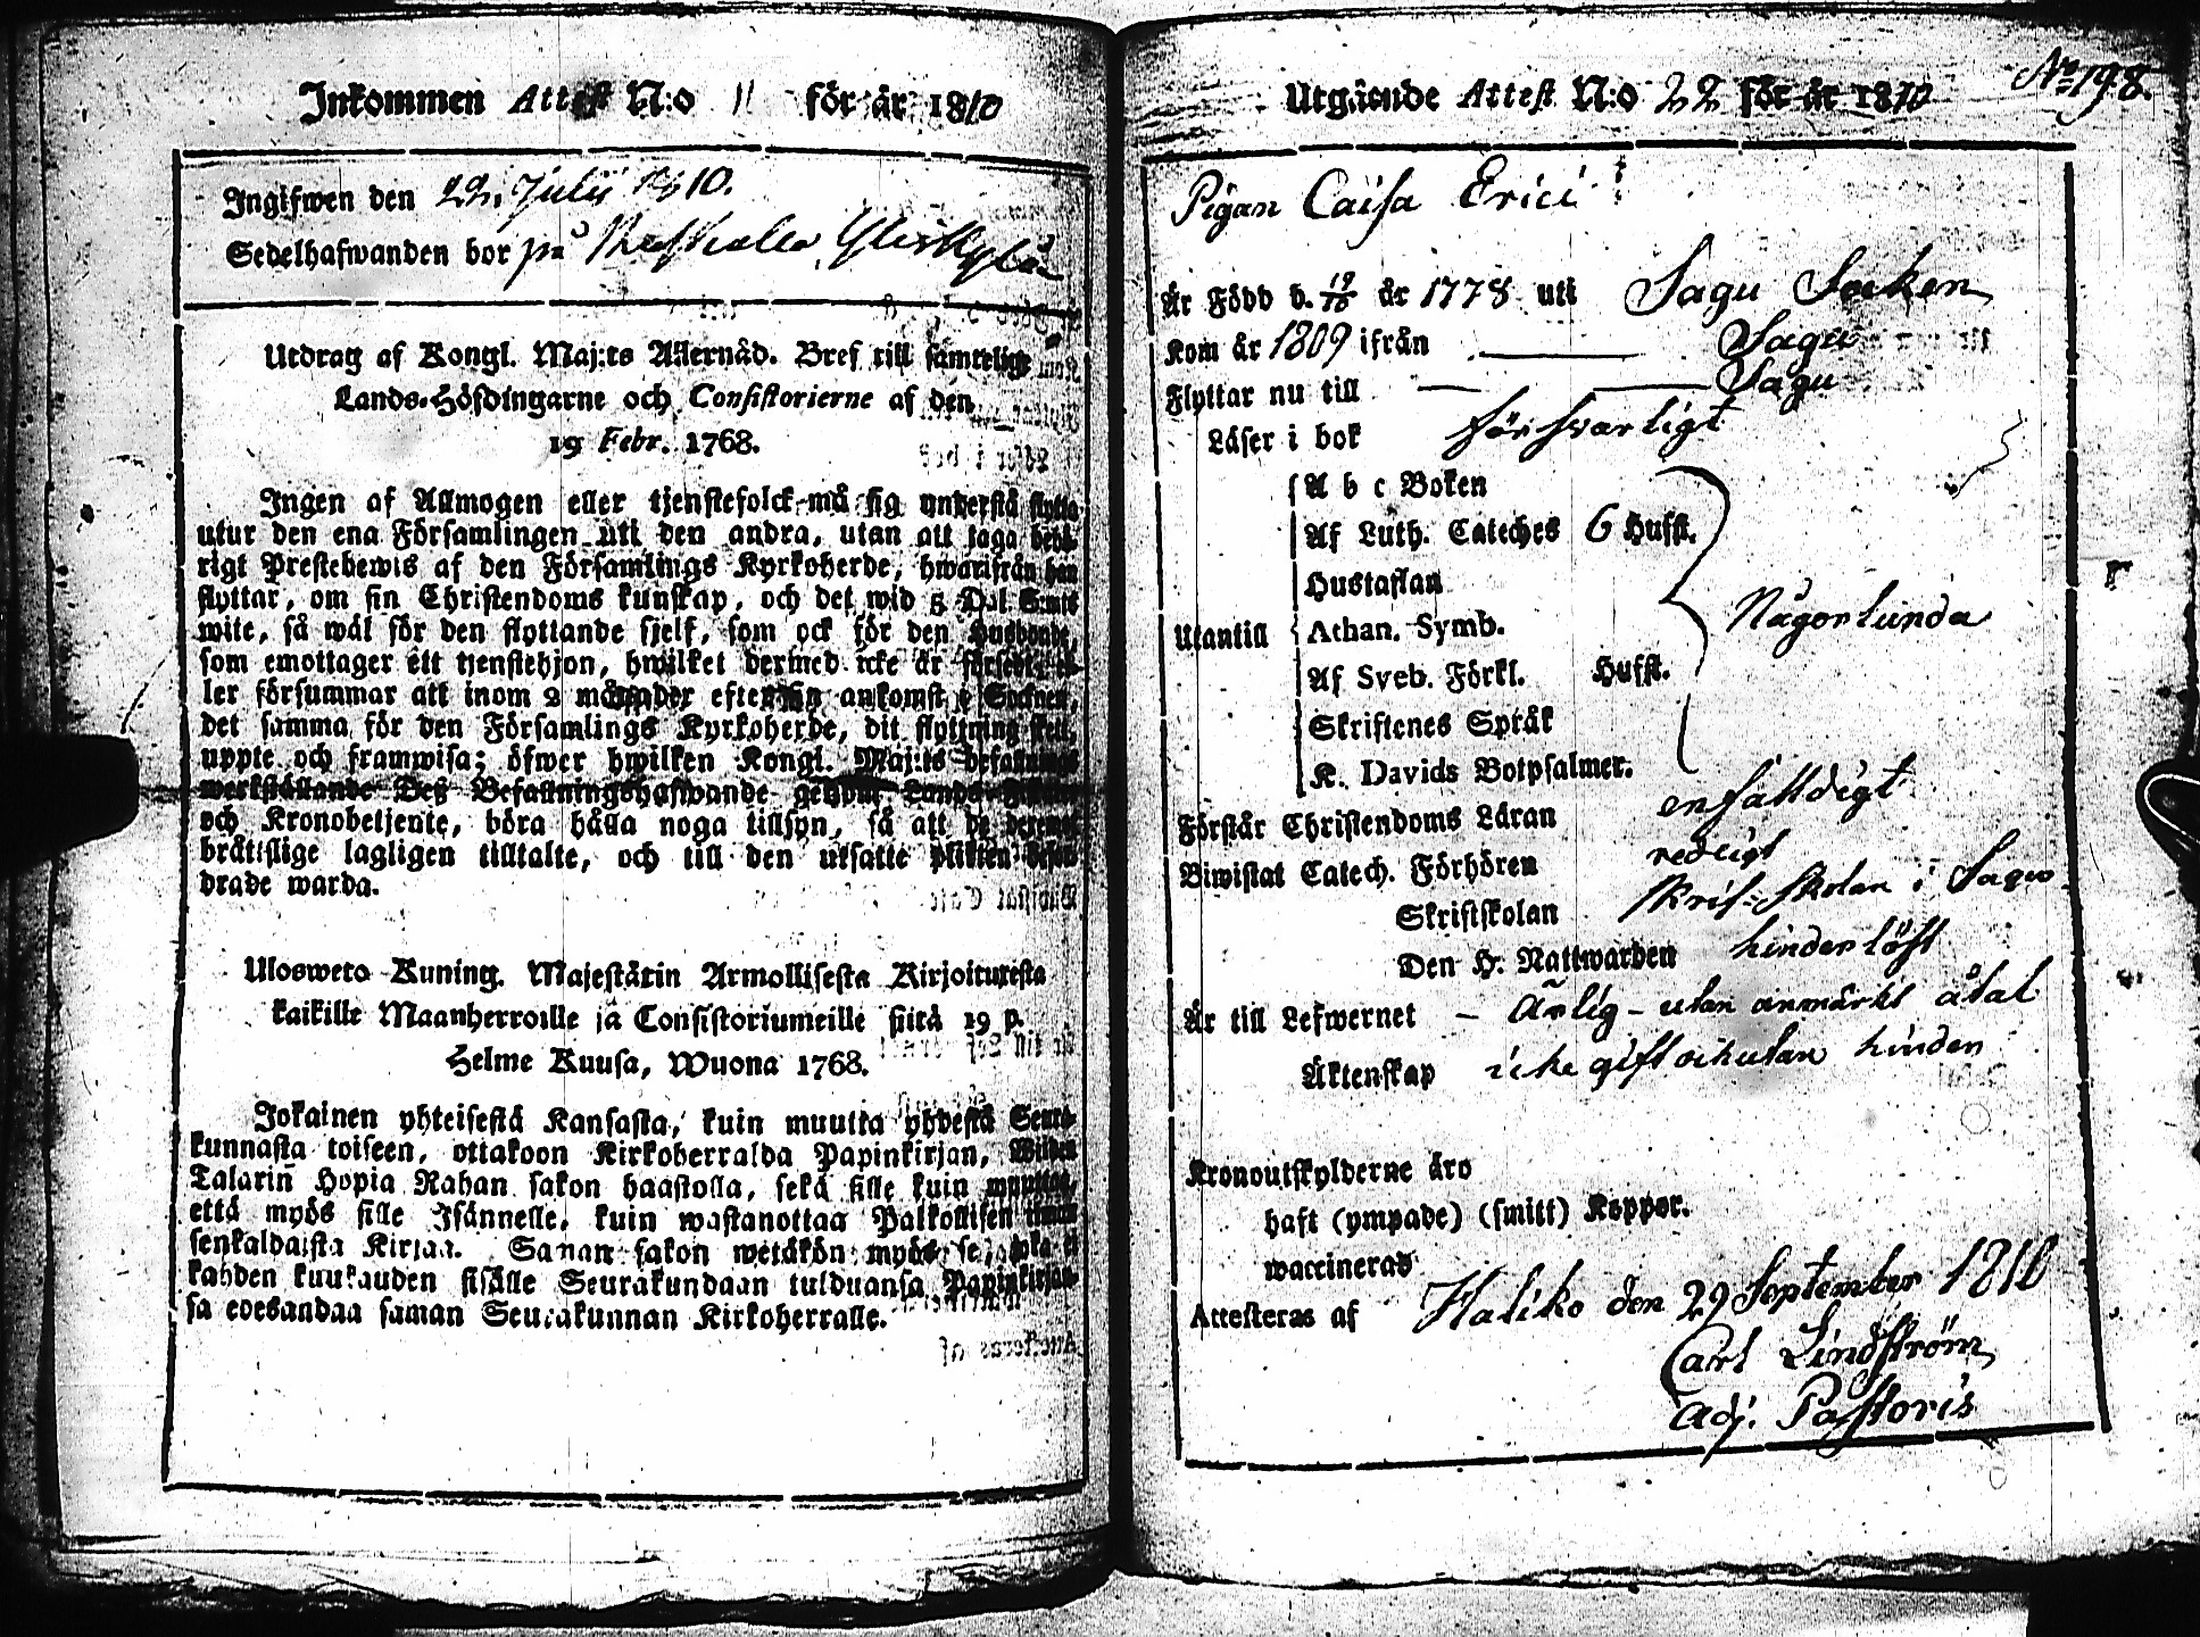 Inkommen Attest N:o 11 för år 1810
Ingifwen den 22. Julii 1810.
Sedelhafwanden bor på
Utdrag af Kongl. Maj:ts Allernåd. Bref till samtelige
Lands-Höfdingarne och Consistorierne af den
19 Febr. 1768.
Ingen af Allmogen eller tjenstefolck må sig understå flytta
utur den ena Församlingen uti den andra, utan att taga behö-
rigt Prestebewis af den Församlings Kyrkoherde, hwarifrån han
flyttar, om sin Christendoms kunskap, och det wid 5 Dal. S:mts
wite, så wäl för den flyttande sjelf, som ock för den Husbonde,
som emottager ett tjenstehjon, hwilket dermed icke är försedt, el-
ler försummar att inom 2 månader efter sin ankomst i Socknen,
det samma för den Församlings Kyrkoherde, dit flyttning skett,
uppte och framwisa; öfwer hwilken Kongl. Maj:ts befallnings
werkställande Des Befallningshafwande genom Lands-
och Kronobetjente, böra hålla noga tillsyn, så att de deremot
bråttslige lagligen tilltalte, och till den utsatte plikten befor-
drade warda.
Ulosweto Kuning. Majestätin Armollisesta Kirjoituxesta
kaikille Maanherroille ja Consistoriumeille siitä 19 p.
Helme Kuusa, Wuona 1768.
Jokainen yhteisestä Kansasta, kuin muutta yhdestä Seura-
kunnasta toiseen, ottakoon Kirkoherralda Papinkirjan, Wiiden
Talarin Hopia Rahan sakon haastolla, sekä sille kuin muuttaa,
että myös sille Isännelle, kuin wastanottaa Palkollisen ilman
senkaldaista Kirjaa. Saman sakon wetäkön myös se, joka ei
kahden kuukauden sisälle Seurakundaan tulduansa Papinkirjan-
sa edesandaa saman Seurakunnan Kirkoherralle.
No 198.
Utgående Attest N:o 22 för år 1810
Pigan Caisa Erici
Är Född d. 19/10 år 1778 uti Sagu Socken
Kom år 1809 ifrån Sagu
Flyttar nu till Sagu
Läser i bok försvarligt
A b c Boken
Af Luth. Cateches 6 Hufst.
Hustaflan
Utantill Athan. Symb. Någorlunda
Af Sveb. Förkl. Hufst.
Skriftenes Språk
K. Davids Botpsalmer.
Förstår Christendoms Läran enfalldigt
Biwistat Catech. Förhören redligt
Skriftskolan Skrif=skolan i Sagu
Den H. Nattwarden hinderlöst
Är till Lefwernet – Ärlig – utan anmärkt åtal
Äktenskap icke gift och utan hinder
Kronoutskylderne äro
haft (ympade) (smitt) Koppor.
waccinerad
Attesteras af Haliko den 29 September 1810
Carl Lindström
Adj. Pastoris